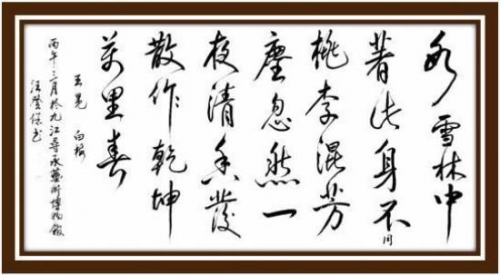 冰雪林中
著此身不同
桃李混芳
塵忽然一
夜清香發
散作乾坤
萬里春
王冕 白梅
丙午三月於九江藝術博物館